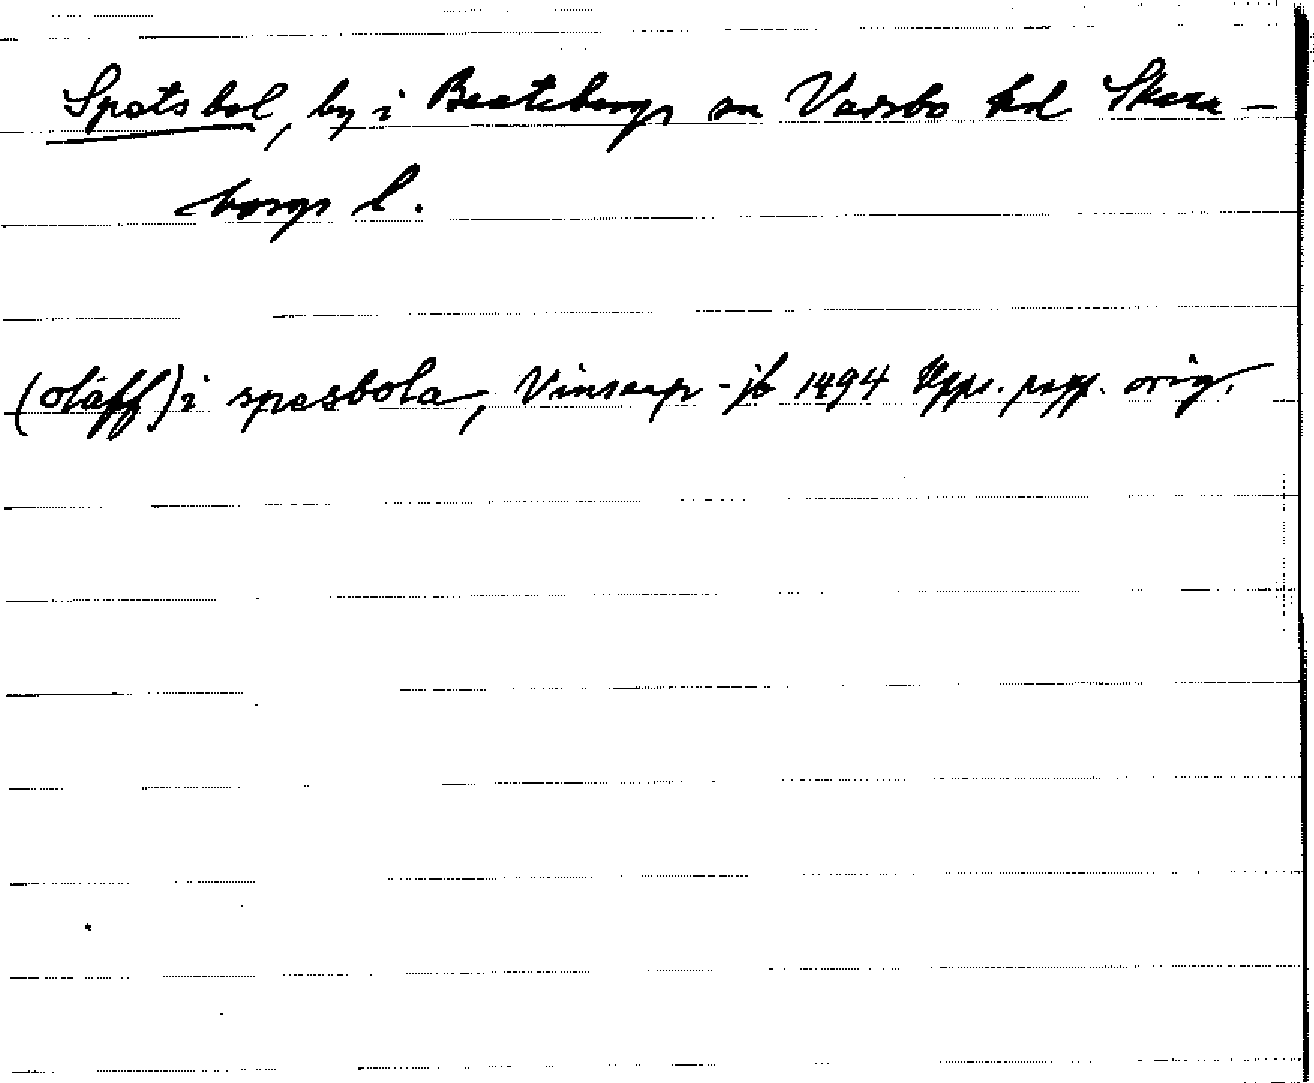 Spatsbol, by i Beatebergs sn Vadsbo hd Skara-
borgs l.
(olaff) i spasbola, Vinsarp-jb 1494 Upps. papp. orig.